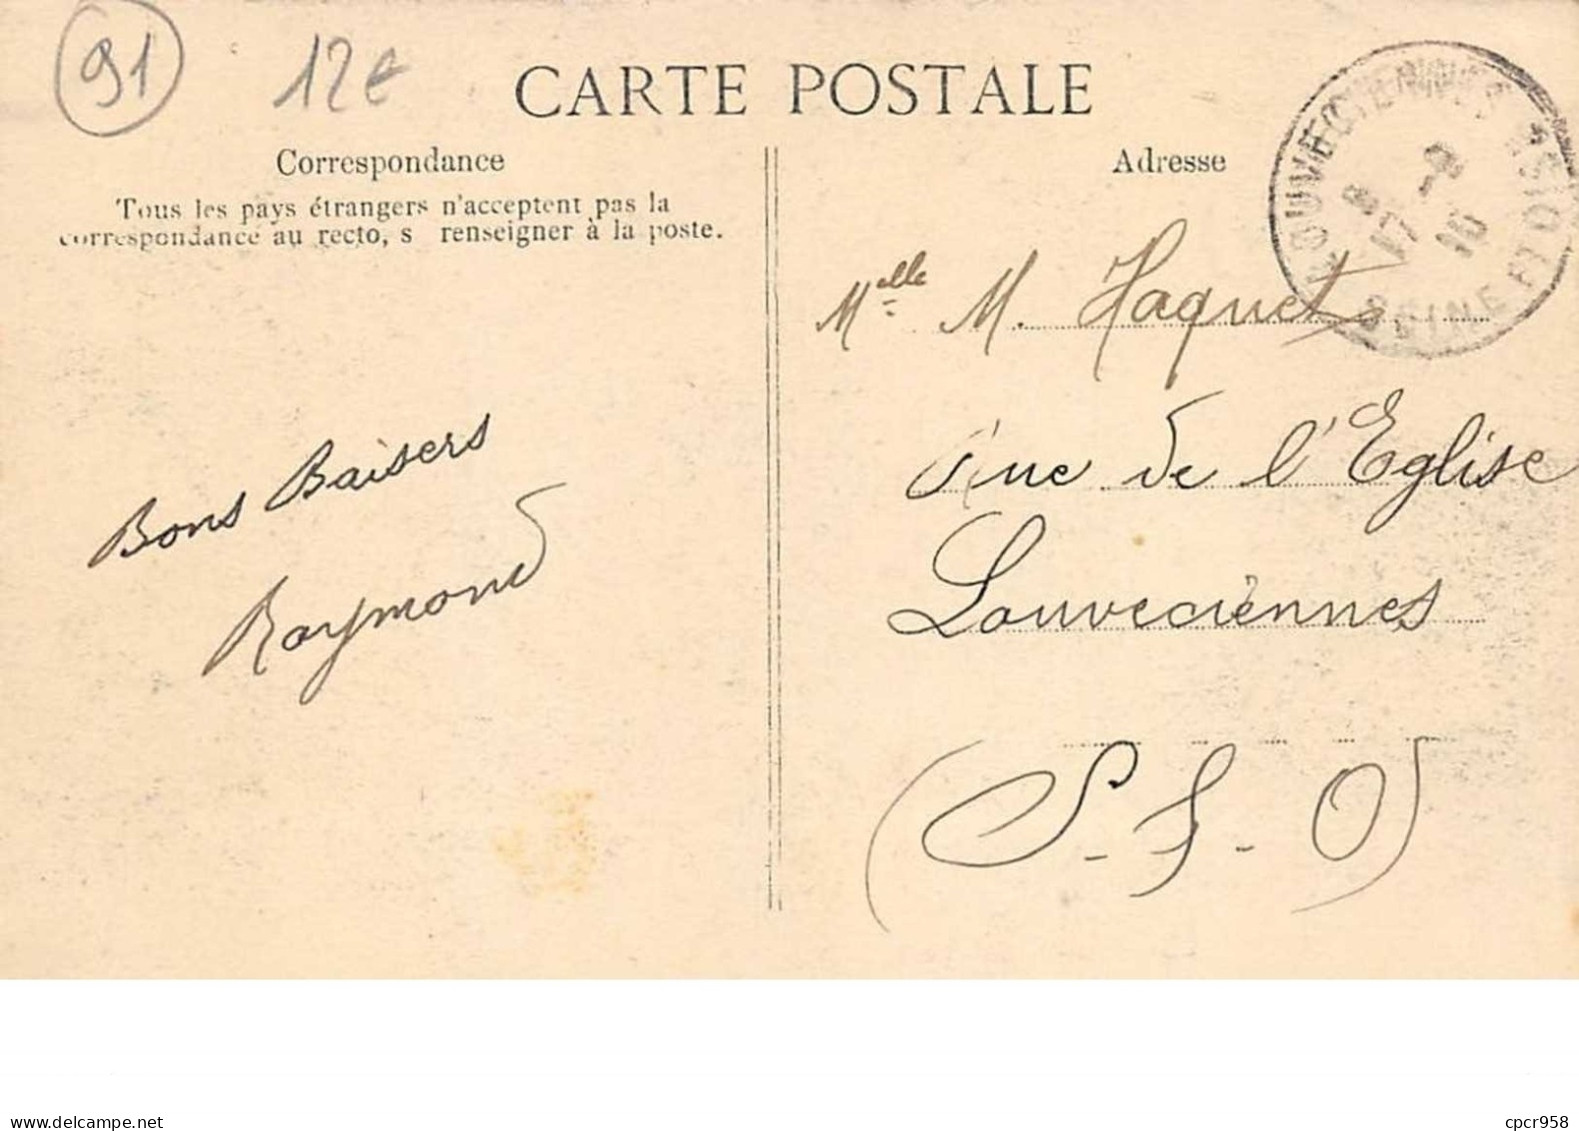 91
12€
CARTE POSTALE
Correspondance
Tous les pays étrangers n'acceptent pas la
correspondance au recto, s renseigner à la poste.
Bons Baisers
Raymond
Adresse
LOUVECIENNES
SEINE ET OISE
Melle M. Haquet
Rue de l'Eglise
Louveciennes
(S-S-O)
delcampe.net
cpcr958